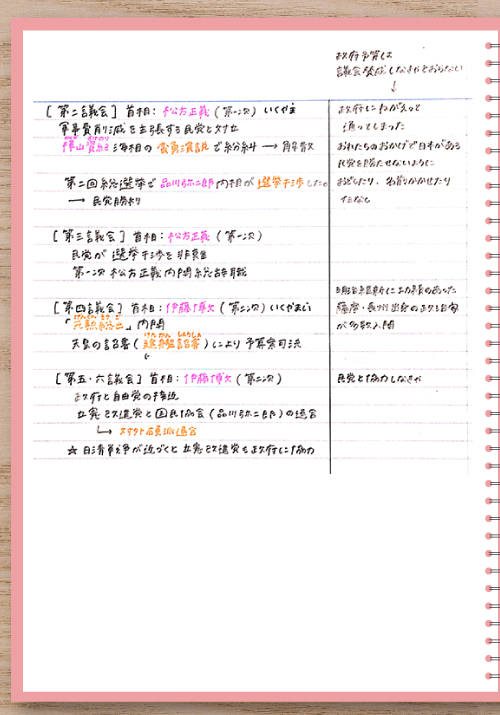 政府予算は
議会賛成しなきゃとおらない
↓
[第二議会] 首相：松方正義（第一次）いくやま
軍事費削減を主張する民党と対立
樺山資紀海相の蛮勇演説で紛糾 → 解散
第二回総選挙で品川弥二郎内相が選挙干渉した。
→ 民党勝利
政府にねがえって
通ってしまった
おれたちのおかげで日本がある
民党を勝たせないように
おどしたり、名前かかせたり
[第三議会] 首相：松方正義（第一次）
民党が選挙干渉を非難
第一次松方正義内閣総辞職
[第四議会] 首相：伊藤博文（第二次）いくやまい
げんくんそうで
「元勲総出」内閣
けんかんしょうちょく
天皇の詔書（建艦詔書）により予算案可決
明治維新に功績のあった
薩摩・長州出身の政治家
が多数入閣
[第五・六議会] 首相：伊藤博文（第二次）
政府と自由党の接近
立憲改進党と国民協会（品川弥二郎）の連合
↳ 対外硬派連合
☆ 日清戦争が近づくと立憲改進党も政府に協力
民党と協力しなきゃ